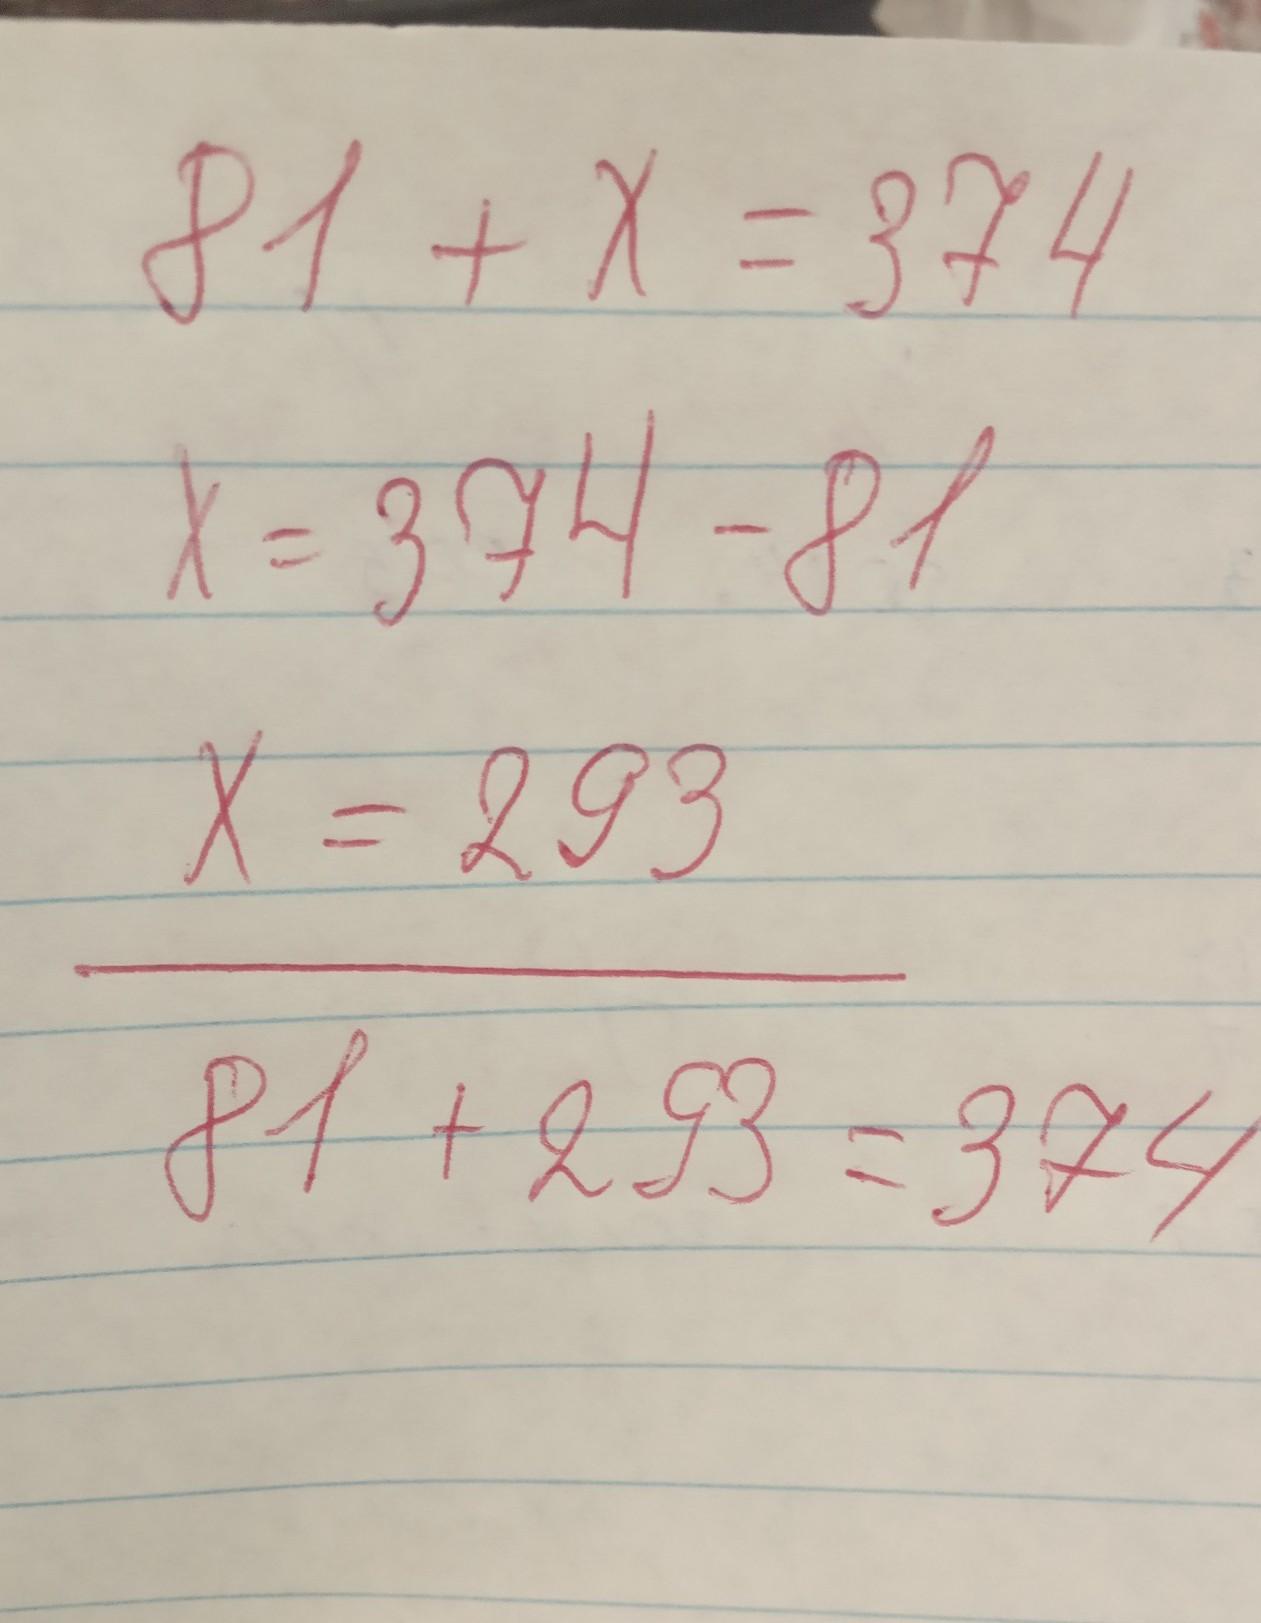 81 + x = 374
x = 374 - 81
x = 293
81 + 293 = 374